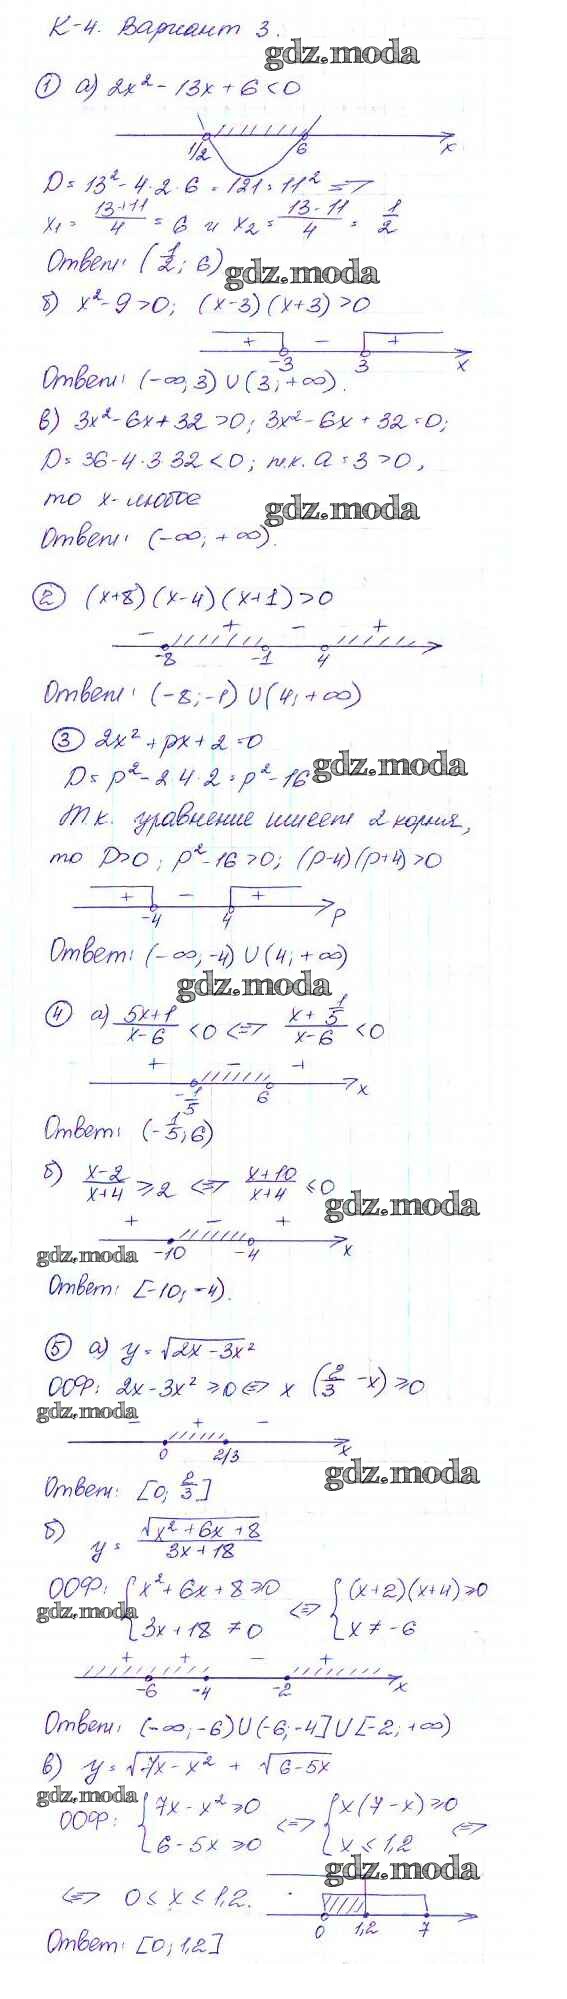 К-4. Вариант 3.
gdz.moda
① а) 2x² - 13x + 6 < 0
1/2 6 x
D = 13² - 4·2·6 = 121 = 11² =>
x₁ = (13+11)/4 = 6 и x₂ = (13-11)/4 = 1/2
Ответ: (1/2; 6)
gdz.moda
б) x² - 9 > 0; (x-3)(x+3) > 0
+ - +
-3 3 x
Ответ: (-∞; 3) ∪ (3; +∞).
в) 3x² - 6x + 32 > 0; 3x² - 6x + 32 = 0;
D = 36 - 4·3·32 < 0; т.к. a = 3 > 0,
то x - любое
gdz.moda
Ответ: (-∞; +∞).
② (x+8)(x-4)(x+1) > 0
- + - +
-8 -1 4
Ответ: (-8; -1) ∪ (4; +∞)
③ 2x² + px + 2 = 0
gdz.moda
D = p² - 2·4·2 = p² - 16
Т.к. уравнение имеет 2 корня,
то D>0; p² - 16 > 0; (p-4)(p+4) > 0
+ - +
-4 4 p
Ответ: (-∞; -4) ∪ (4; +∞)
gdz.moda
④ а) (5x+1)/(x-6) < 0 <=> (x + 1/5)/(x-6) < 0
+ - +
-1/5 6 x
Ответ: (-1/5; 6)
б) (x-2)/(x+4) ≥ 2 <=> (x+10)/(x+4) ≤ 0
gdz.moda
+ - +
gdz.moda
-10 -4 x
Ответ: [-10; -4).
⑤ а) y = √(2x - 3x²)
ООФ: 2x - 3x² ≥ 0 <=> x (2/3 - x) ≥ 0
gdz.moda
- + -
0 2/3 x
gdz.moda
Ответ: [0; 2/3]
б) y = √(x² + 6x + 8)/(3x + 18)
ООФ: { x² + 6x + 8 ≥ 0 <=> { (x+2)(x+4) ≥ 0
gdz.moda
3x + 18 ≠ 0 x ≠ -6
+ + - +
-6 -4 -2 x
Ответ: (-∞; -6) ∪ (-6; -4] ∪ [-2; +∞)
в) y = √(7x - x²) + √(6-5x)
gdz.moda
ООФ: { 7x - x² ≥ 0 <=> { x(7-x) ≥ 0
6 - 5x ≥ 0 x ≤ 1,2 <=>
gdz.moda
<=> 0 ≤ x ≤ 1,2.
0 1,2 7
Ответ: [0; 1,2]